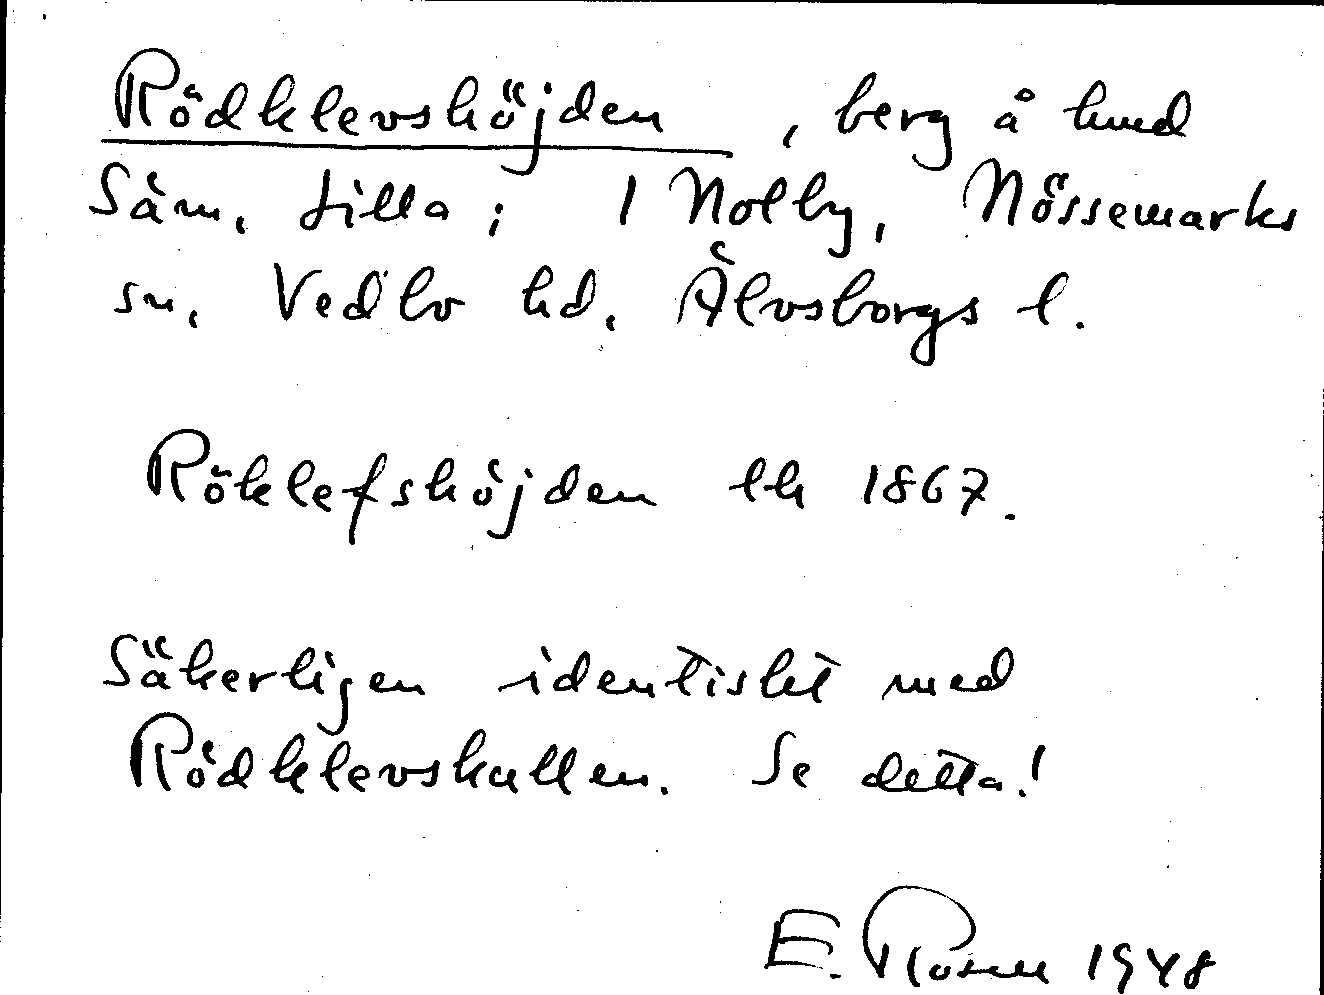 Rödklevshöjden, berg å hmd
Säm. tilla; 1 Nolby, Nössemarks
sn, Vedbo hd, Älvsborgs l.
Röklefshöjden lk 1867.
Säkerligen identiskt med
Rödklevskullen. Se detta!
E. Rosell 1948